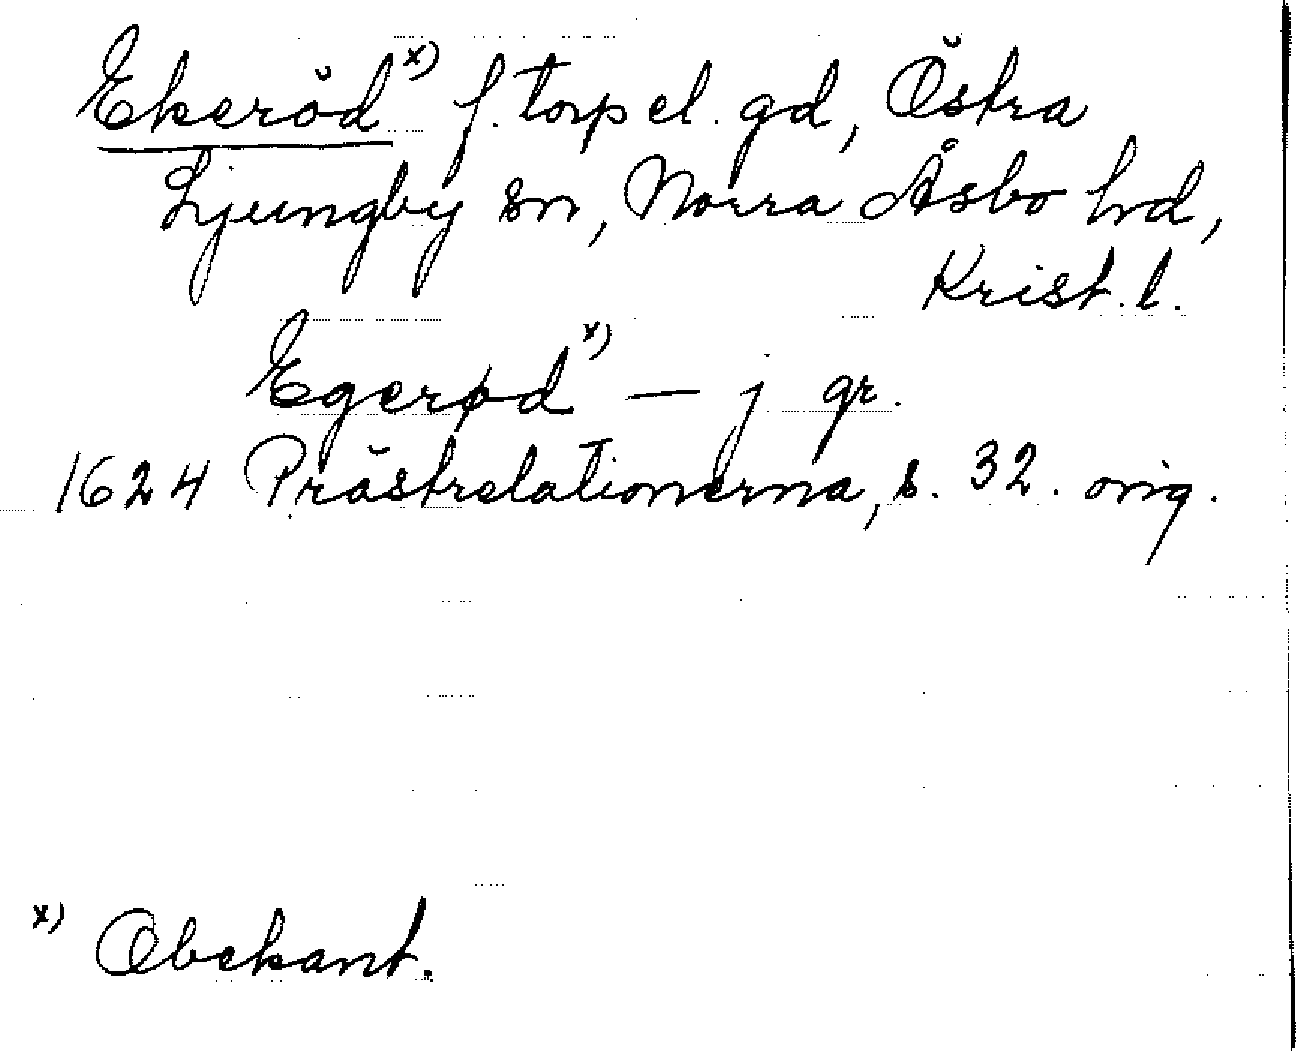 Ekeröd x) f. torp el. gd, Östra
Ljungby sn, Norra Åsbo hd,
Krist. l.
Egerød x) — j gr.
1624 Prästrelationerna, s. 32. orig.
x) Obekant.